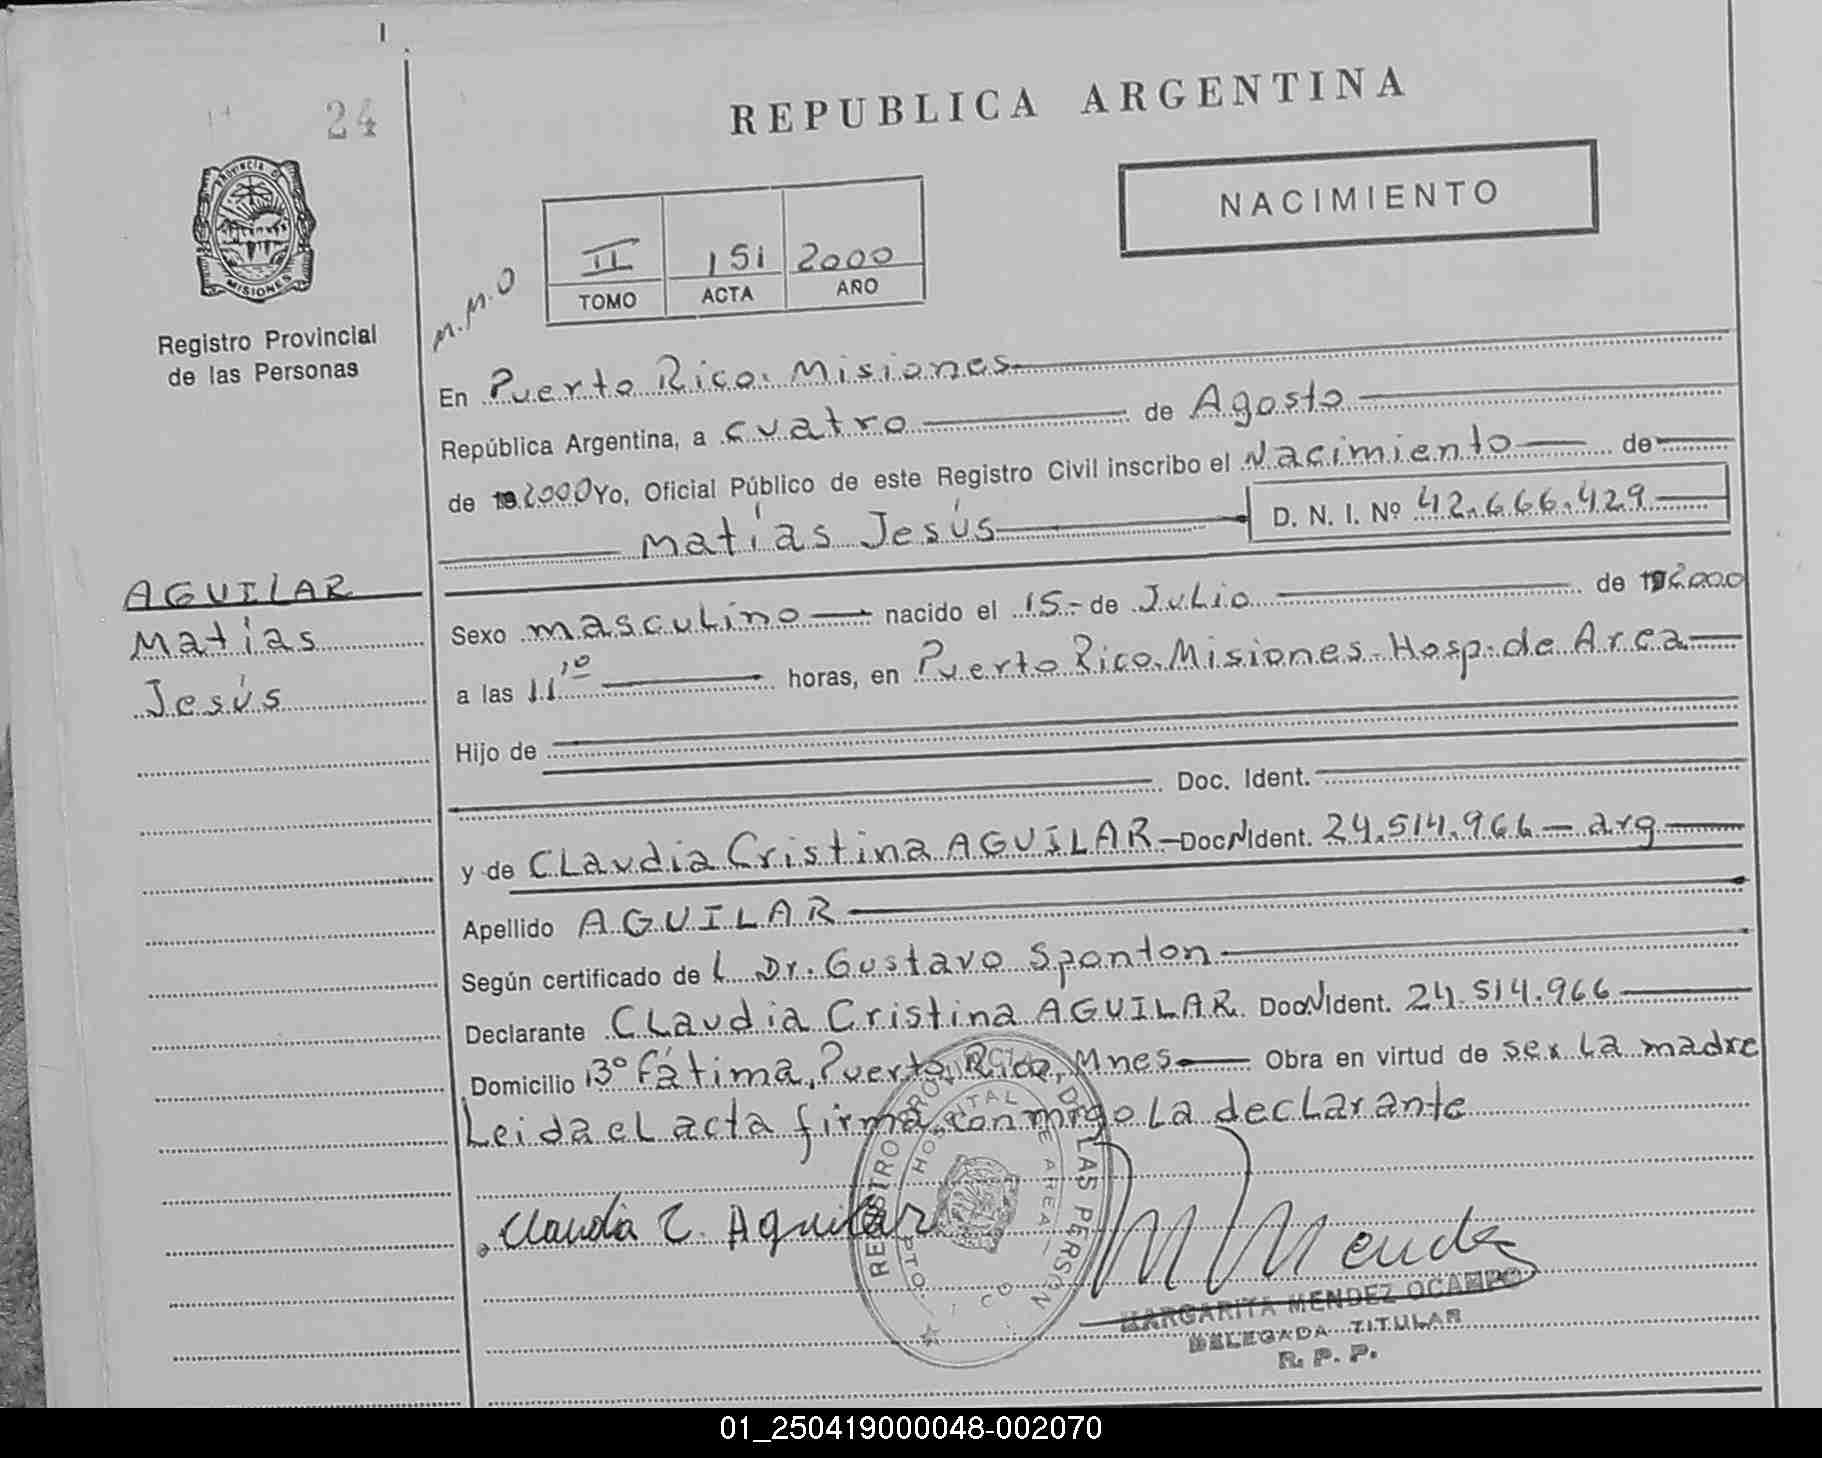 24
REPUBLICA ARGENTINA
NACIMIENTO
PROVINCIA D
MISIONES
Registro Provincial
de las Personas
II 151 2000
TOMO ACTA AÑO
M.M.O
En Puerto Rico. Misiones
República Argentina, a cuatro de Agosto
de 19 2000 Yo, Oficial Público de este Registro Civil inscribo el Nacimiento de
Matías Jesús D. N. I. Nº 42.666.429
AGUILAR
Matías
Jesús
Sexo masculino nacido el 15 - de Julio de 19 2000
a las 11,10 horas, en Puerto Rico. Misiones - Hosp. de Area
Hijo de
Doc. Ident.
y de Claudia Cristina AGUILAR - Doc N Ident. 24.514.966 - arg
Apellido AGUILAR
Según certificado de l Dr. Gustavo Sponton
Declarante Claudia Cristina AGUILAR Doc N Ident. 24.514.966
Domicilio Bº Fátima, Puerto Rico, Mnes Obra en virtud de ser la madre
Leida el acta firma conmigo la declarante
Claudia C. Aguilar
M Mendez
REGISTRO PROVINCIAL DE LAS PERSONAS
HOSPITAL DE AREA
MARGARITA MENDEZ OCAMPO
DELEGADA TITULAR
R. P. P.
01_250419000048-002070